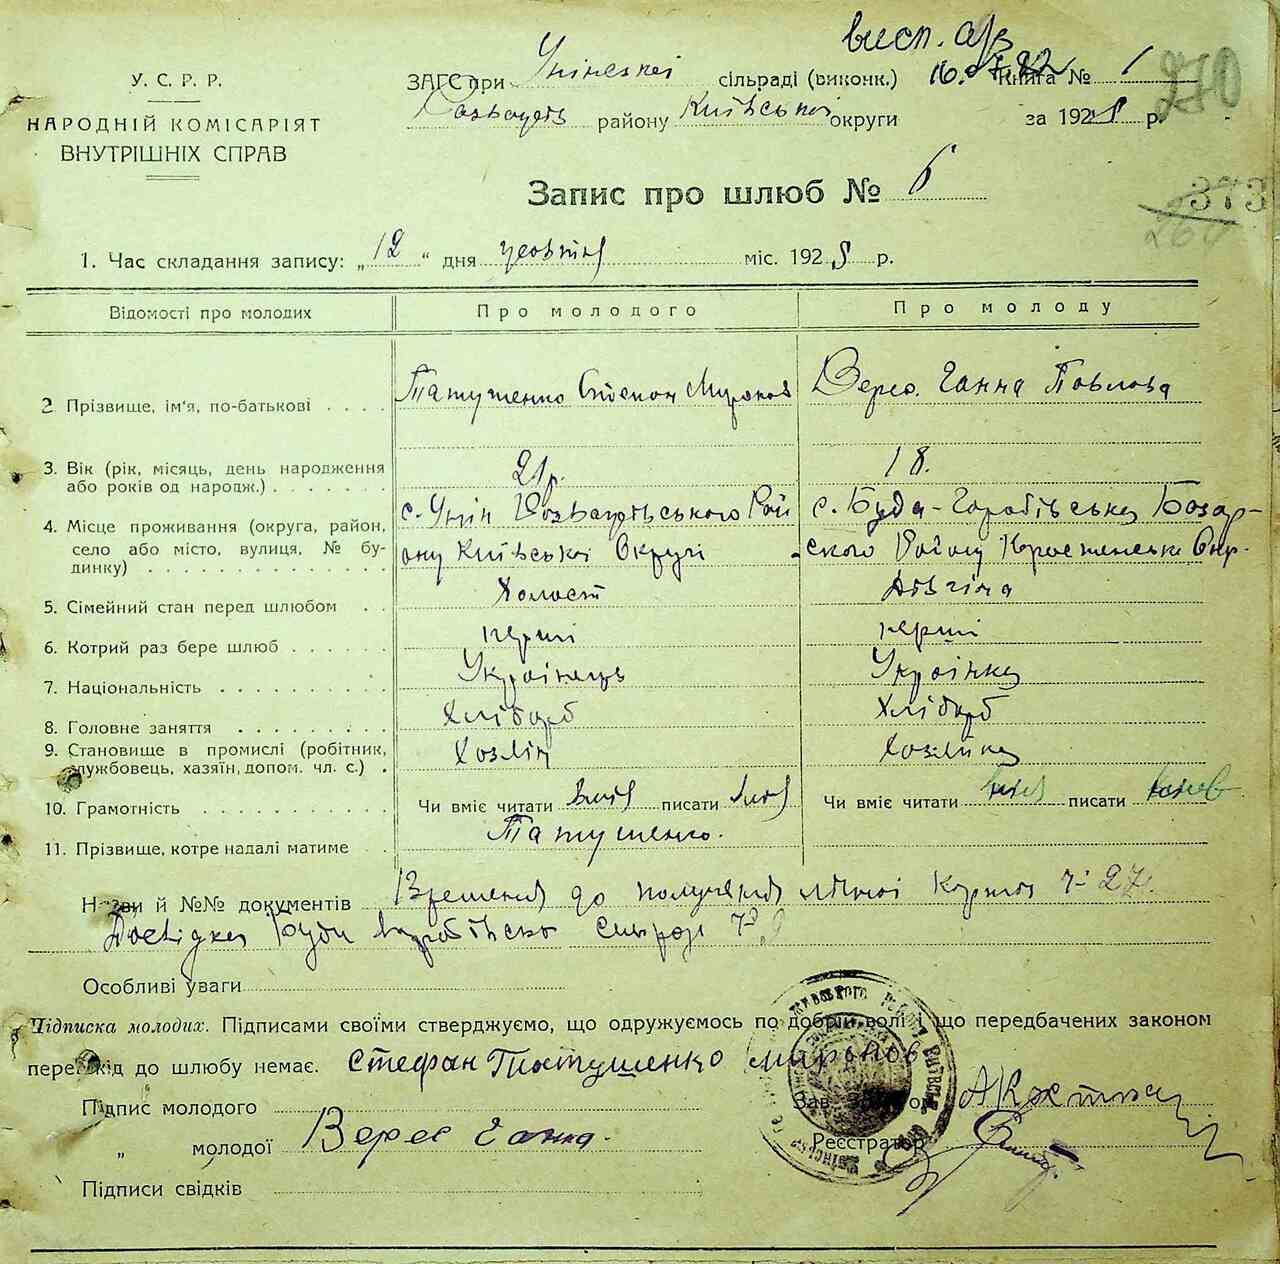 висп. а/з
У. С. Р. Р.
НАРОДНІЙ КОМІСАРІЯТ
ВНУТРІШНІХ СПРАВ
ЗАГС при Унінської сільраді (виконк.) Книга № 1
району Київської округи за 1928 р.
270
Запис про шлюб № 6
373
1. Час складання запису: „12“ дня жовтня міс. 1928 р.
Відомості про молодих Про молодого Про молоду
2 Прізвище, ім'я, по-батькові Татушенко Степан Миронов Верес Ганна Павлова
3. Вік (рік, місяць, день народження 21р. 18.
або років од народж.)
4. Місце проживання (округа, район, с. Унін Розважівського Рай с. Буда-Горобівська Базар-
село або місто, вулиця, № бу- ону Київської Округи ського Району Коростенської Окр.
динку)
5. Сімейний стан перед шлюбом Холост дівчина
6. Котрий раз бере шлюб перший перший
7. Національність Українець Українка
8. Головне заняття Хлібороб Хлібороб
9. Становище в промислі (робітник, Хозяїн Хозяйка
службовець, хазяїн, допом. чл. с.)
10. Грамотність Чи вміє читати вміє писати вміє Чи вміє читати вміє писати
11. Прізвище, котре надалі матиме Татушенко.
Назви й №№ документів до получення № 27.
Буди сільради №
Особливі уваги
Підписка молодих. Підписами своїми стверджуємо, що одружуємось по добрій волі і що передбачених законом
перешкід до шлюбу немає. Стефан Татушенко Миронов
Підпис молодого Зав.
„ молодої Верес Ганна. Реєстратор
Підписи свідків